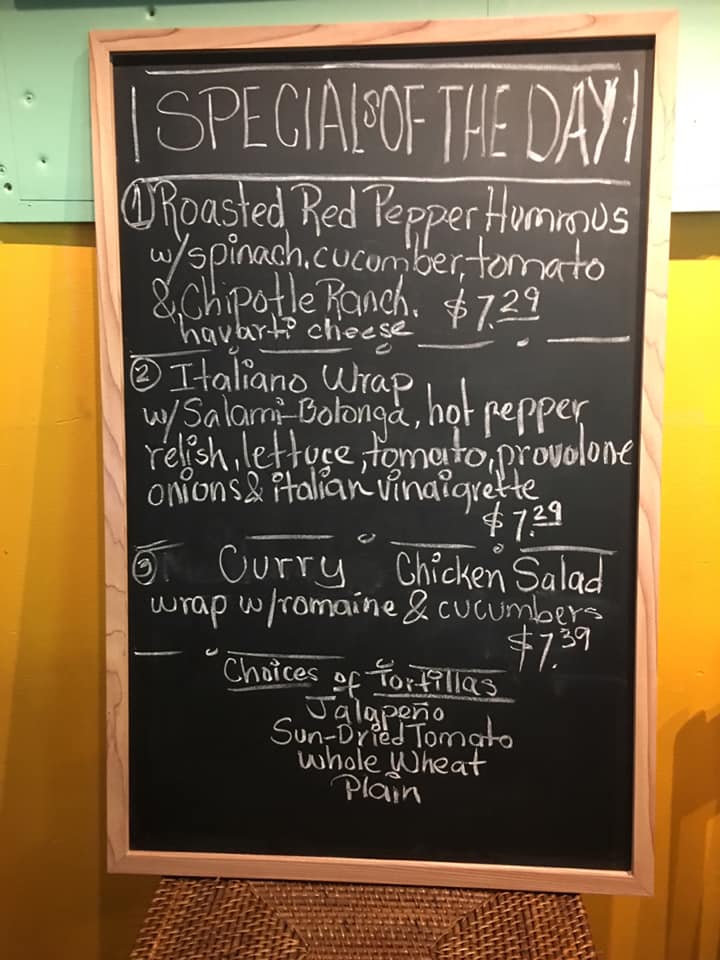 SPECIALs OF THE DAY!
① Roasted Red Pepper Hummus
w/spinach, cucumber, tomato
& Chipotle Ranch. $7.29
havarti cheese
② Italiano Wrap
w/Salami-Bolonga, hot pepper
relish, lettuce, tomato, provolone
onions & italian vinaigrette
$7.29
③ Curry Chicken Salad
wrap w/romaine & cucumbers
$7.39
Choices of Tortillas
Jalapeño
Sun-Dried Tomato
Whole Wheat
Plain